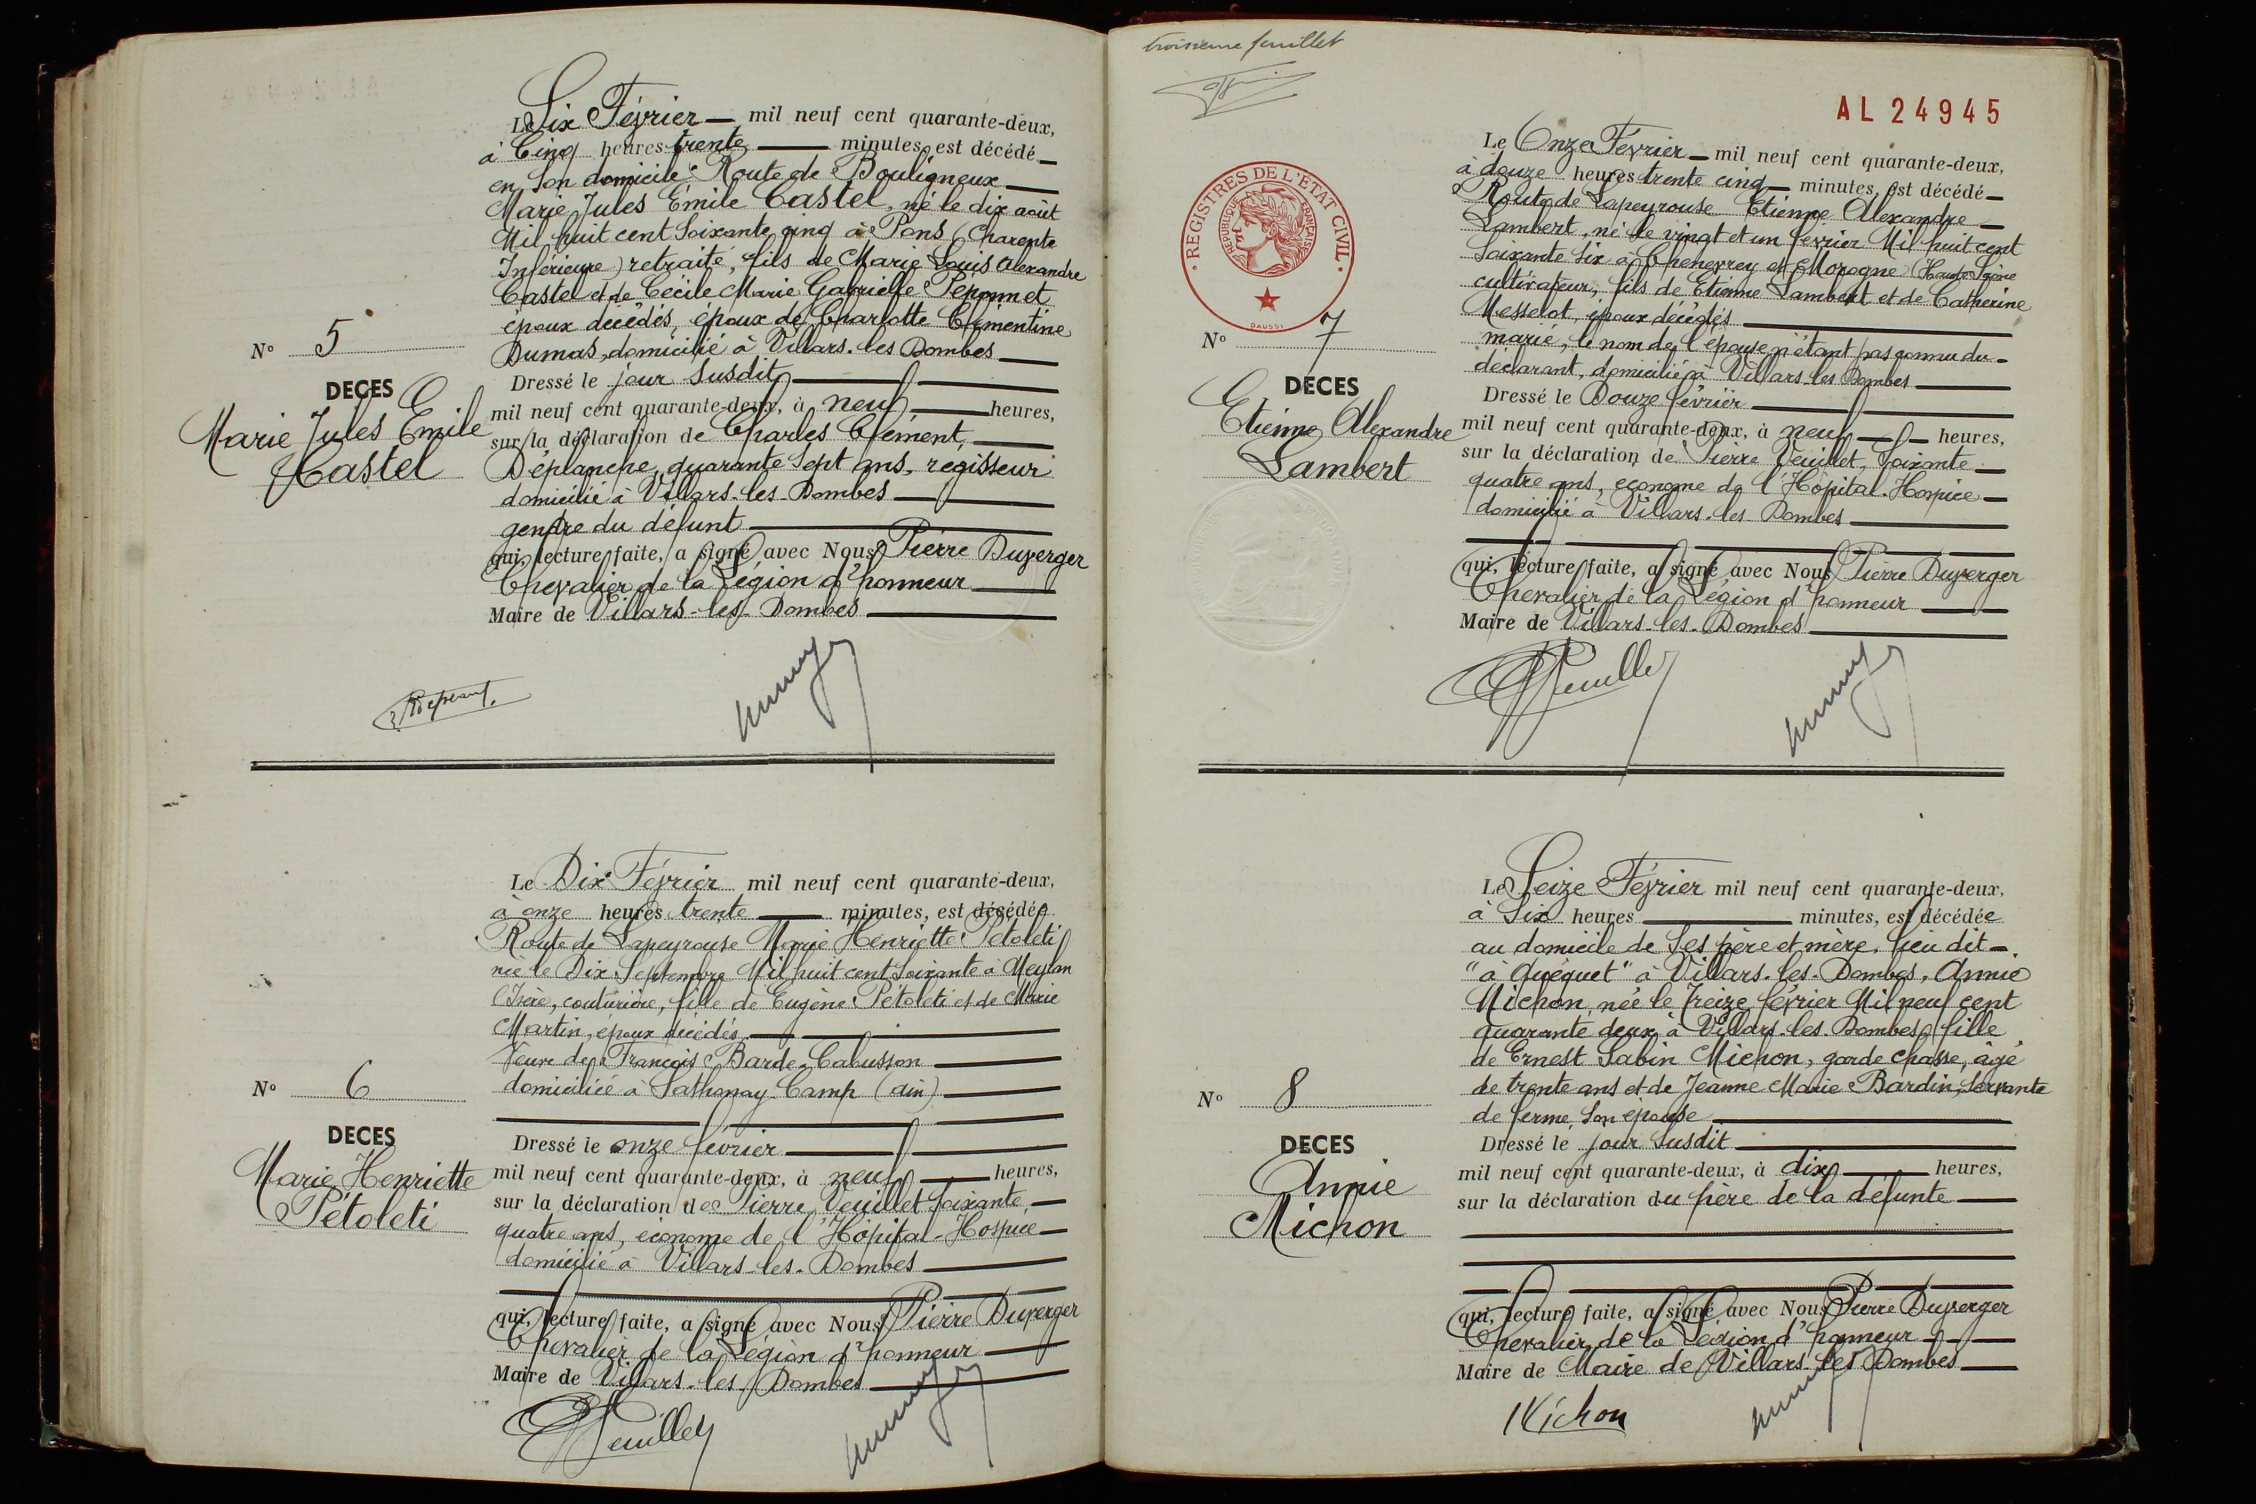 Le Six Février mil neuf cent quarante-deux,
à Cinq heures trente minutes, est décédé
en son domicile Route de Bouligneux
Marie Jules Émile Castel, né le dix août
Mil huit cent soixante cinq à Pons (Charente
Inférieure) retraité, fils de Marie Louis Alexandre
Castel et de Cécile Marie Gabrielle
époux décédés, époux de Charlotte Clémentine
Dumas, domicilié à Villars-les-Dombes
N° 5
Dressé le jour susdit
DECES
mil neuf cent quarante-deux, à neuf heures,
Marie Jules Emile
sur la déclaration de Charles Clément,
Castel
Déplanche, quarante sept ans, régisseur
domicilié à Villars-les-Dombes
gendre du défunt
qui, lecture faite, a signé avec Nous Pierre Duverger
Chevalier de la Légion d'honneur
Maire de Villars-les-Dombes
Le Dix Février mil neuf cent quarante-deux,
à onze heures trente minutes, est décédée
Route de Lapeyrouse Marie Henriette Pétoleti
née le Dix Septembre Mil huit cent soixante à Meylan
(Isère, couturière, fille de Eugène Pétoleti et de Marie
Martin, époux décédés
Veuve de François Barde-Cabusson
domiciliée à Sathonay-Camp (ain)
N° 6
DECES
Dressé le onze février
Marie Henriette
mil neuf cent quarante-deux, à neuf heures,
Pétoleti
sur la déclaration de Pierre Veuillet soixante
quatre ans, économe de l'Hôpital-Hospice
domicilié à Villars-les-Dombes
qui, lecture faite, a signé avec Nous Pierre Duverger
Chevalier de la Légion d'honneur
Maire de Villars-les-Dombes
Veuillet
troisième feuillet
AL 24945
REGISTRES DE L'ETAT CIVIL
REPUBLIQUE FRANÇAISE
DAUSSI
Le Onze Février mil neuf cent quarante-deux,
à douze heures trente cinq minutes, est décédé
Route de Lapeyrouse Etienne Alexandre
Lambert, né le vingt et un février Mil huit cent
soixante six à Chenevrey et Morogne (Haute Saône
cultivateur, fils de Etienne Lambert et de Catherine
Messelot, époux décédés
N° 7
marié, le nom de l'épouse n'étant pas connu du
déclarant, domicilié à Villars-les-Dombes
DECES
Dressé le Douze février
Etienne Alexandre
mil neuf cent quarante-deux, à neuf heures,
Lambert
sur la déclaration de Pierre Veuillet, soixante
quatre ans, econome de l'Hôpital-Hospice
domicilié à Villars-les-Dombes
qui, lecture faite, a signé avec Nous Pierre Duverger
Chevalier de la Légion d'honneur
Maire de Villars-les-Dombes
Veuillet
Le Seize Février mil neuf cent quarante-deux,
à Six heures minutes, est décédée
au domicile de ses père et mère, lieu dit
"à Quéquet" à Villars-les-Dombes, Annie
Michon, née le treize février Mil neuf cent
quarante deux à Villars-les-Dombes, fille
de Ernest Sabin Michon, garde chasse, âgé
de trente ans et de Jeanne Marie Bardin, servante
N° 8
de ferme, son épouse
DECES
Dressé le jour susdit
Annie
mil neuf cent quarante-deux, à dix heures,
Michon
sur la déclaration du père de la défunte
qui, lecture faite, a signé avec Nous Pierre Duverger
Chevalier de la Légion d'honneur
Maire de Maire de Villars-les-Dombes
Michon